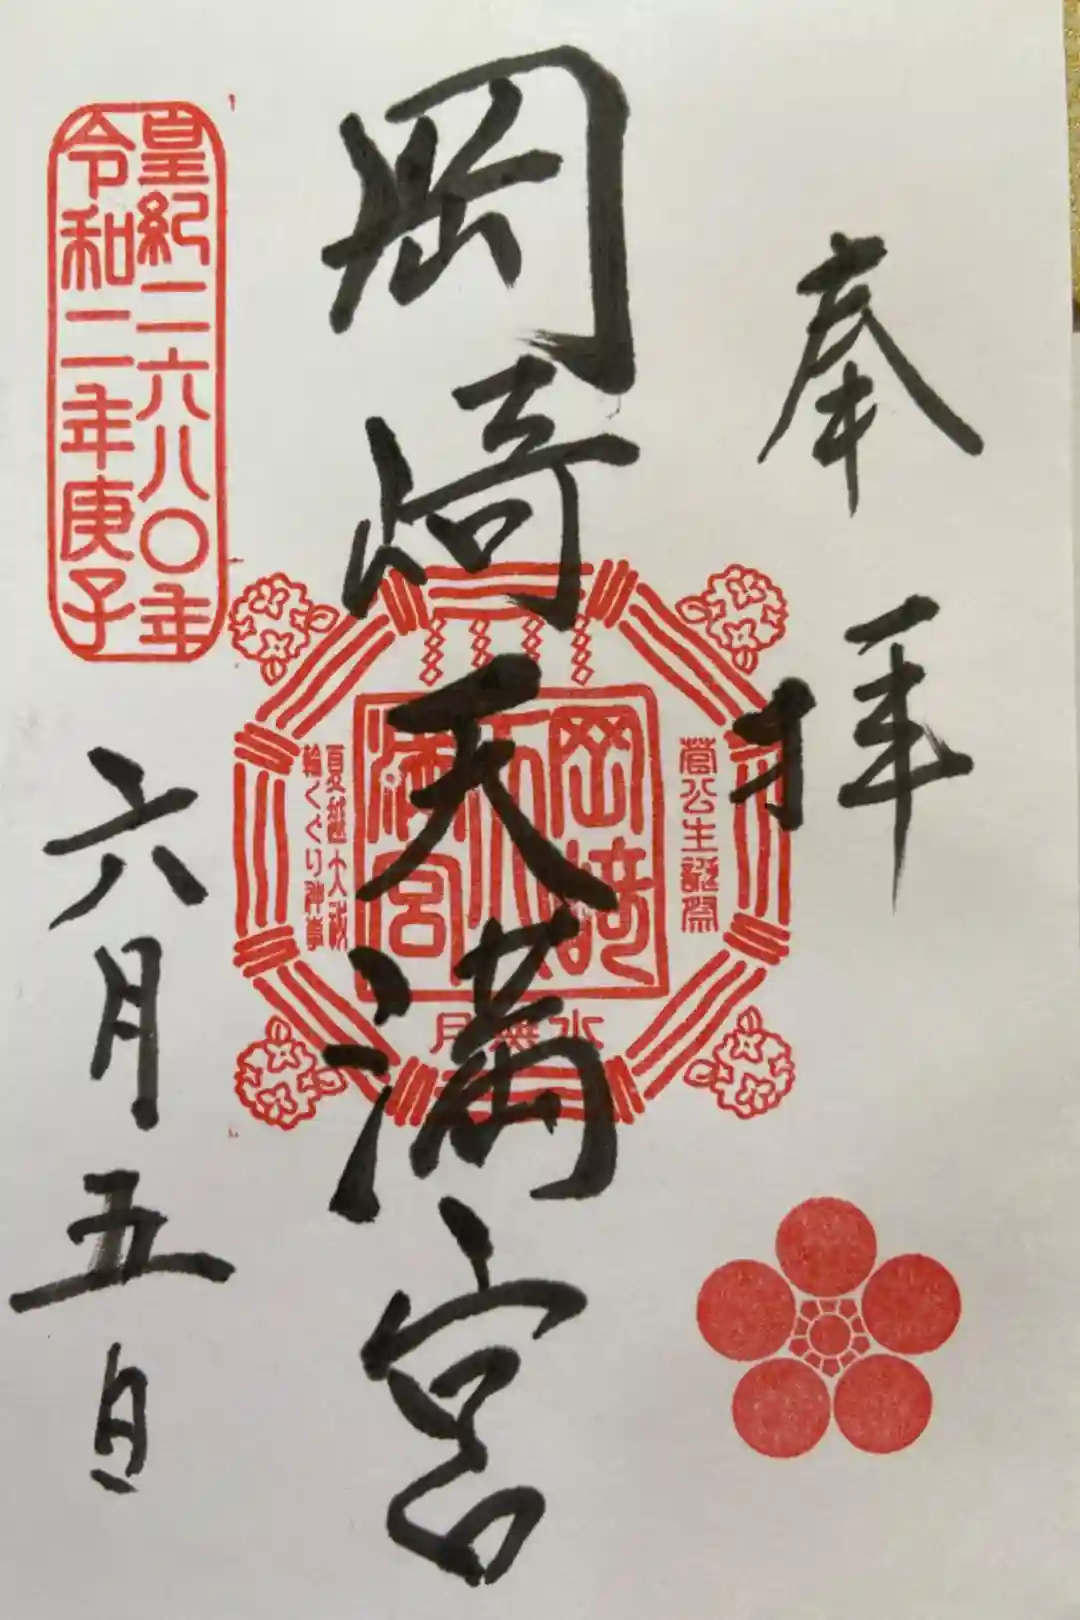 奉拝
岡崎天満宮
六月五日
皇紀二六八〇年
令和二年庚子
菅公生誕祭
岡崎
天
満宮
夏越大祓
輪くぐり神事
水無月